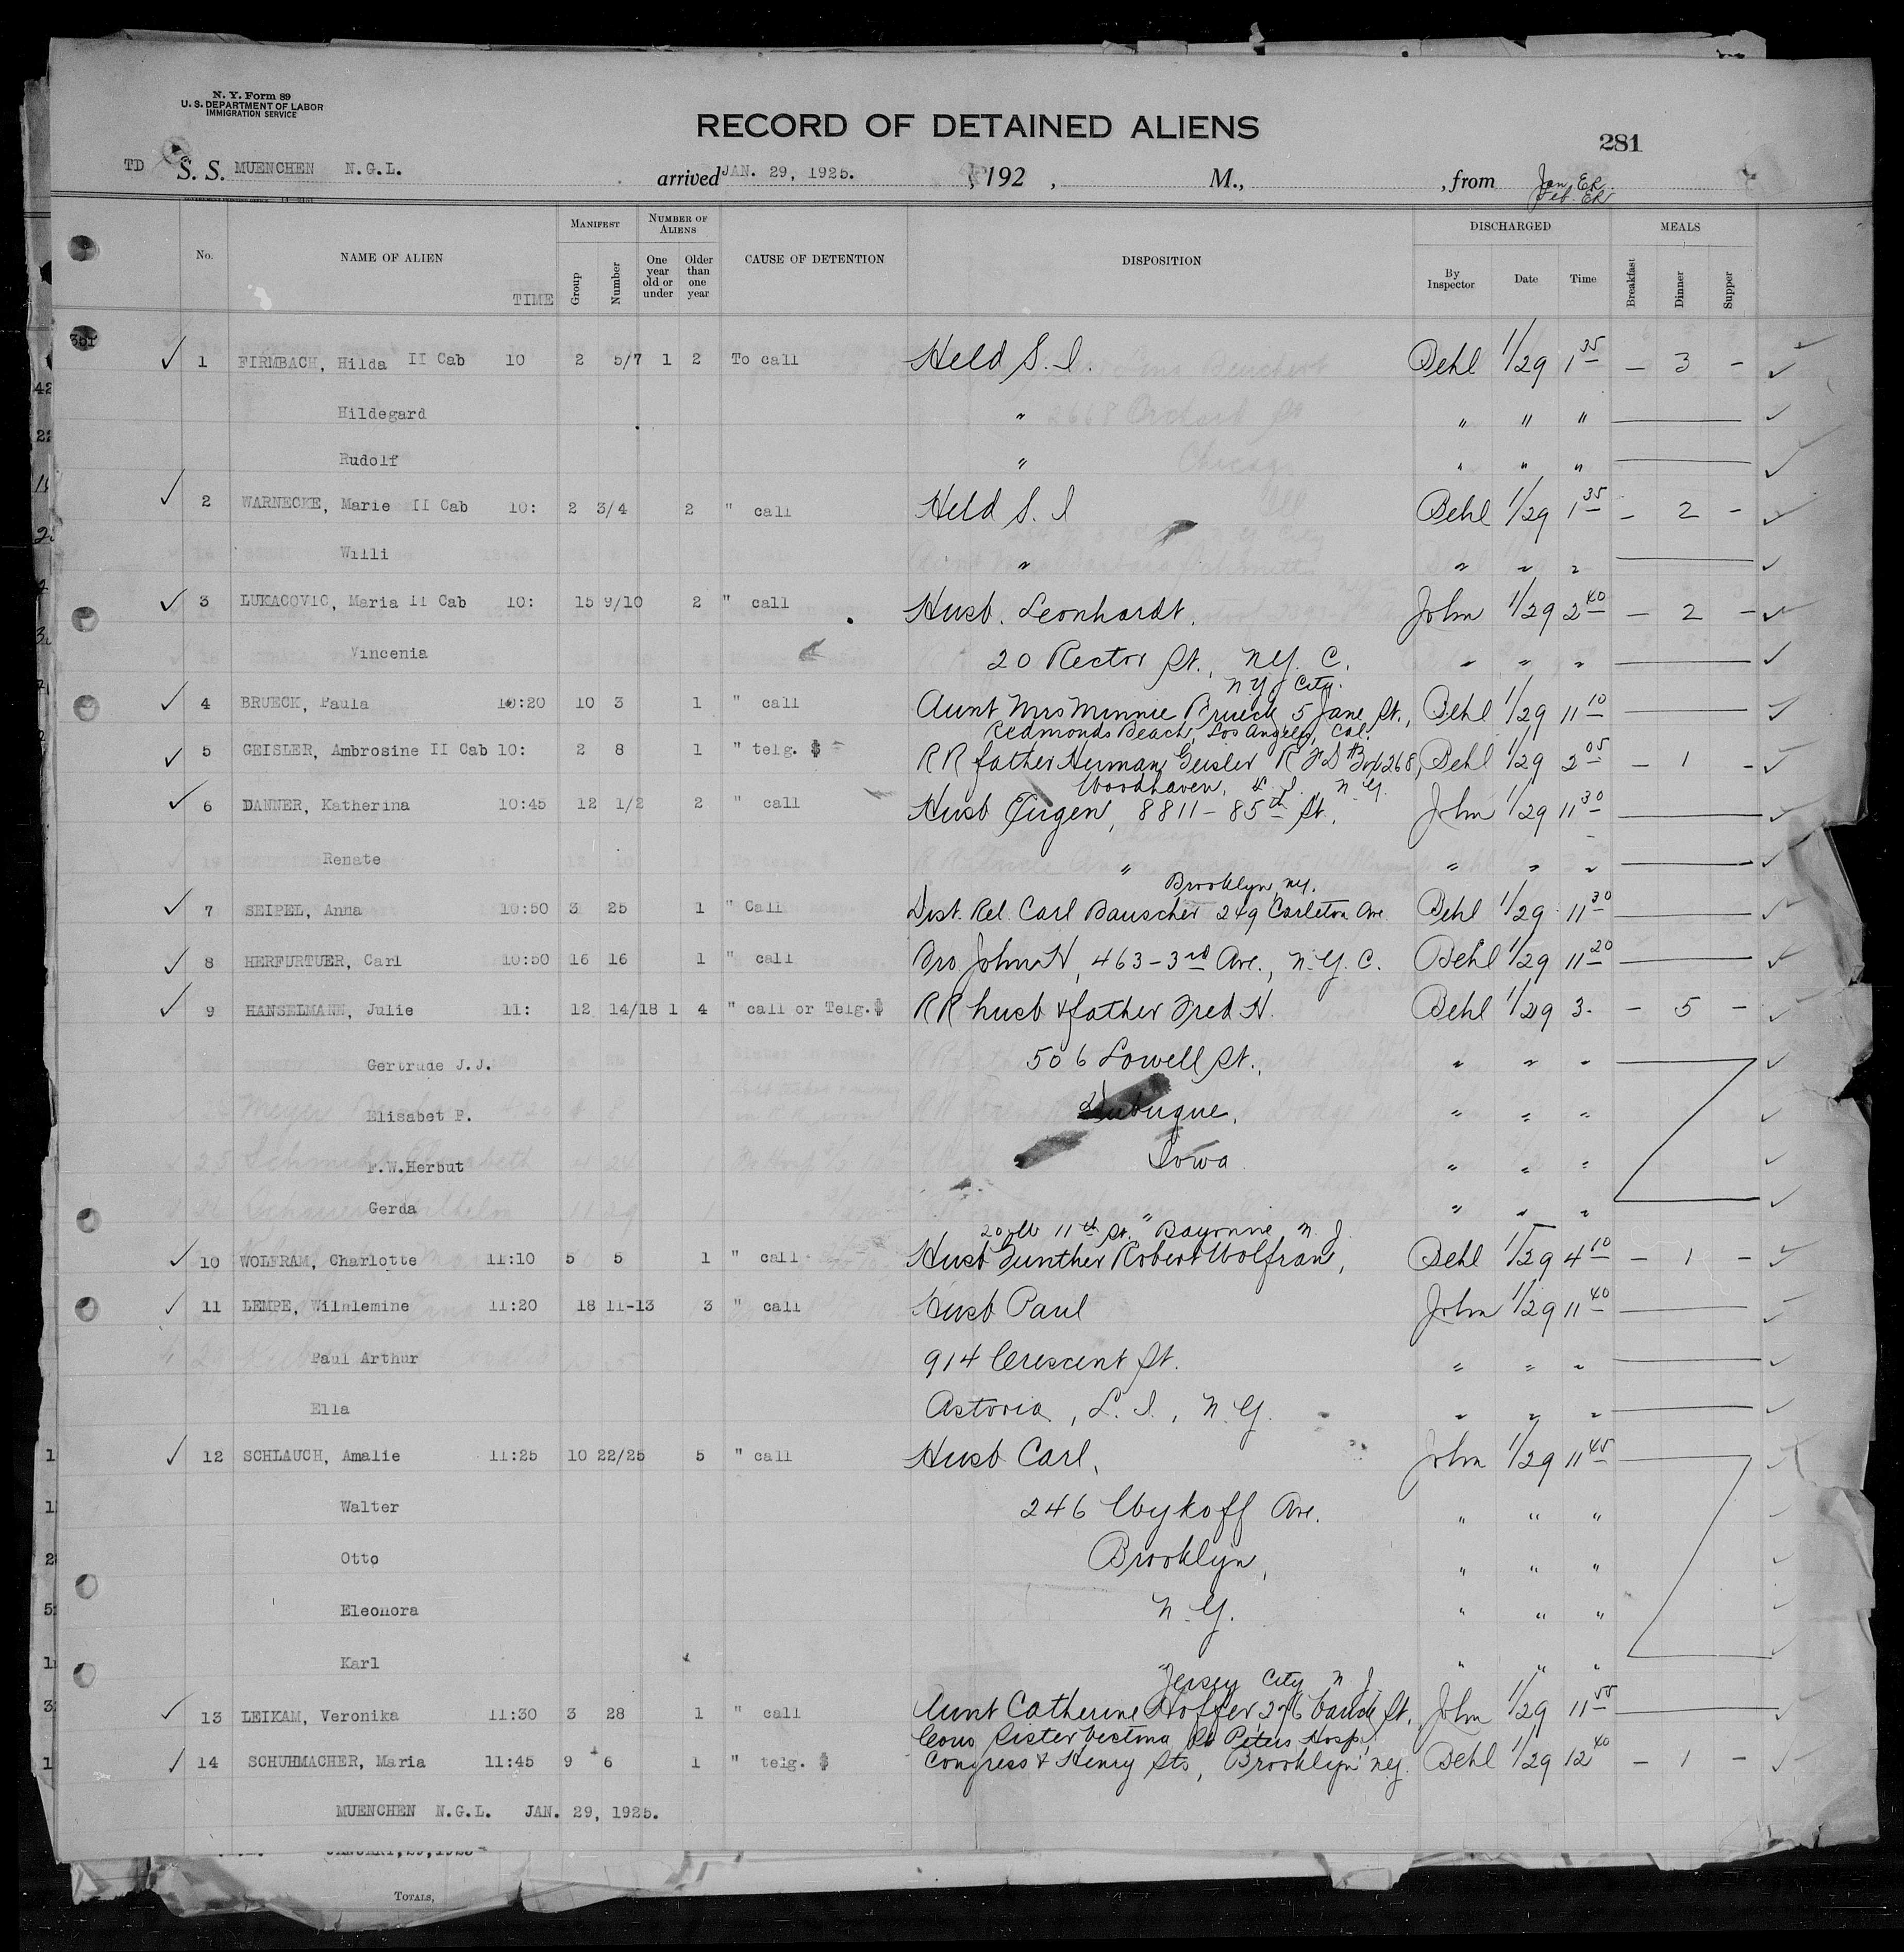 N. Y. Form 89
U. S. DEPARTMENT OF LABOR
IMMIGRATION SERVICE
RECORD OF DETAINED ALIENS
281
TD S. S. MUENCHEN N.G.L. arrived JAN. 29, 1925. , 192 , M., , from Jan ER
Feb. ER
No. NAME OF ALIEN TIME MANIFEST Group Number NUMBER OF ALIENS One year old or under Older than one year CAUSE OF DETENTION DISPOSITION DISCHARGED By Inspector Date Time MEALS Breakfast Dinner Supper
351
✓ 1 FIRMBACH, Hilda II Cab 10 2 5/7 1 2 To call Held S. I. Behl 1/29 1 35 – 3 – ✓
Hildegard " " " " ✓
Rudolf " " " " ✓
✓ 2 WARNECKE, Marie II Cab 10: 2 3/4 2 " call Held S. I Behl 1/29 1 35 – 2 – ✓
Willi " " " " ✓
✓ 3 LUKACOVIC, Maria II Cab 10: 15 9/10 2 " call Husb. Leonhardt. John 1/29 2 40 – 2 – ✓
Vincenia 20 Rector St., N.Y. C. " " " ✓
N.Y. City.
✓ 4 BRUECK, Paula 10:20 10 3 1 " call Aunt Mrs Minnie Brueck, 5 Jane St., Behl 1/29 11 10 ✓
Redmonds Beach, Los Angeles, Cal.
✓ 5 GEISLER, Ambrosine II Cab 10: 2 8 1 " telg. $ R R father Herman Geisler R F D # Box 268, Behl 1/29 2 05 – 1 – ✓
Woodhaven, L. I. N. Y.
✓ 6 DANNER, Katherina 10:45 12 1/2 2 " call Husb Eugen, 8811 – 85th St., John 1/29 11 30 ✓
Renate " " " " ✓
Brooklyn, N.Y.
✓ 7 SEIPEL, Anna 10:50 3 25 1 " Call Dist. Rel. Carl Bauscher 249 Carleton Ave Behl 1/29 11 30 ✓
✓ 8 HERFURTUER, Carl 10:50 16 16 1 " call Bro. John H, 463 – 3rd Ave., N.Y. C. Behl 1/29 11 20 ✓
✓ 9 HANSELMANN, Julie 11: 12 14/18 1 4 " call or Telg.$ R R husb & father Fred H. Behl 1/29 3. – 5 – ✓
Gertrude J.J. 506 Lowell St., " " " ✓
Elisabet P. Dubuque, " " " ✓
F.W.Herbut Iowa " " " ✓
Gerda " " " " ✓
11th St. Bayonne N. J.
✓ 10 WOLFRAM, Charlotte 11:10 5 5 1 " call Husb Gunther Robert Wolfram, Behl 1/29 4 10 – 1 – ✓
✓ 11 LEMPE, Wilhlemine 11:20 18 11-13 3 " call Husb Paul John 1/29 11 40 ✓
Paul Arthur 914 Crescent St. " " " ✓
Ella Astoria, L. I., N. Y. " " " ✓
✓ 12 SCHLAUCH, Amalie 11:25 10 22/25 5 " call Husb Carl, John 1/29 11 45 ✓
Walter 246 Wykoff Ave. " " " ✓
Otto Brooklyn, " " " ✓
Eleonora N. Y. " " " ✓
Karl " " " " ✓
Jersey City N. J.
✓ 13 LEIKAM, Veronika 11:30 3 28 1 " call Aunt Catherine Hoffer, St. John 1/29 11 55 ✓
Cous Sister St Peters Hosp,
✓ 14 SCHUHMACHER, Maria 11:45 9 6 1 " telg. $ Congress & Henry Sts, Brooklyn N.Y. Behl 1/29 12 40 – 1 – ✓
MUENCHEN N.G.L. JAN. 29, 1925.
TOTALS,